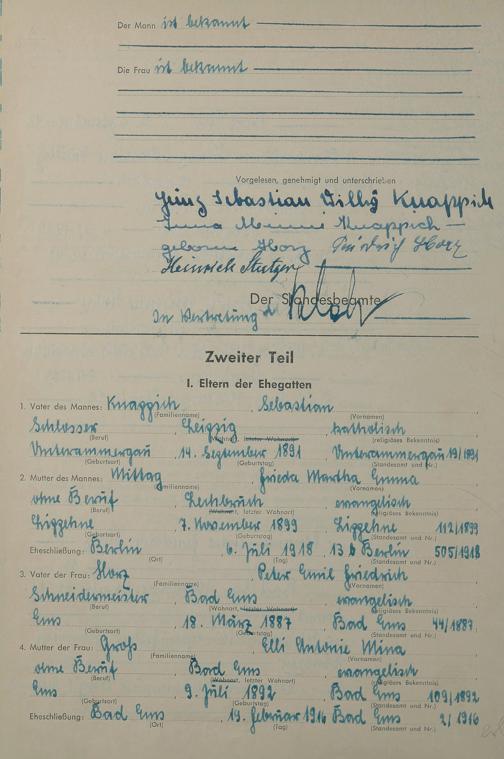 Der Mann ist bekannt
Die Frau ist bekannt
Vorgelesen, genehmigt und unterschrieben
Sebastian Willy Knappich
Minni Knappich
geborene Horz Friedrich Horz
Heinrich
Der Standesbeamte
In Vertretung
Zweiter Teil
I. Eltern der Ehegatten
1. Vater des Mannes: Knappich, Sebastian
(Familienname) (Vornamen)
Schlosser, Leipzig, katholisch
(Beruf) (Wohnort, letzter Wohnort) (religiöses Bekenntnis)
Unterammergau, 14. September 1891, Unterammergau 19/1891
(Geburtsort) (Geburtstag) (Standesamt und Nr.)
2. Mutter des Mannes: Mittag, Frieda Martha Emma
(Familienname) (Vornamen)
ohne Beruf, Lechbruck, evangelisch
(Beruf) (Wohnort, letzter Wohnort) (religiöses Bekenntnis)
7. November 1899, 112/1899
(Geburtsort) (Geburtstag) (Standesamt und Nr.)
Eheschließung: Berlin, 6. Juli 1918, 13 b Berlin 505/1918
(Ort) (Tag) (Standesamt und Nr.)
3. Vater der Frau: Horz, Peter Emil Friedrich
(Familienname) (Vornamen)
Schneidermeister, Bad Ems, evangelisch
(Beruf) (Wohnort, letzter Wohnort) (religiöses Bekenntnis)
Ems, 18. März 1887, Bad Ems 44/1887
(Geburtsort) (Geburtstag) (Standesamt und Nr.)
4. Mutter der Frau: Groß, Elli Antonie Mina
(Familienname) (Vornamen)
ohne Beruf, Bad Ems, evangelisch
(Beruf) (Wohnort, letzter Wohnort) (religiöses Bekenntnis)
Ems, 9. Juli 1892, Bad Ems 109/1892
(Geburtsort) (Geburtstag) (Standesamt und Nr.)
Eheschließung: Bad Ems, 19. Februar 1916 Bad Ems 2/1916
(Ort) (Tag) (Standesamt und Nr.)